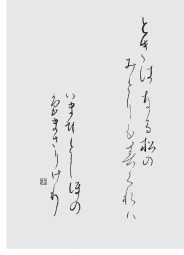 ときはなる松の
みどりも春くれは
いまひとしほの
色まさりけり